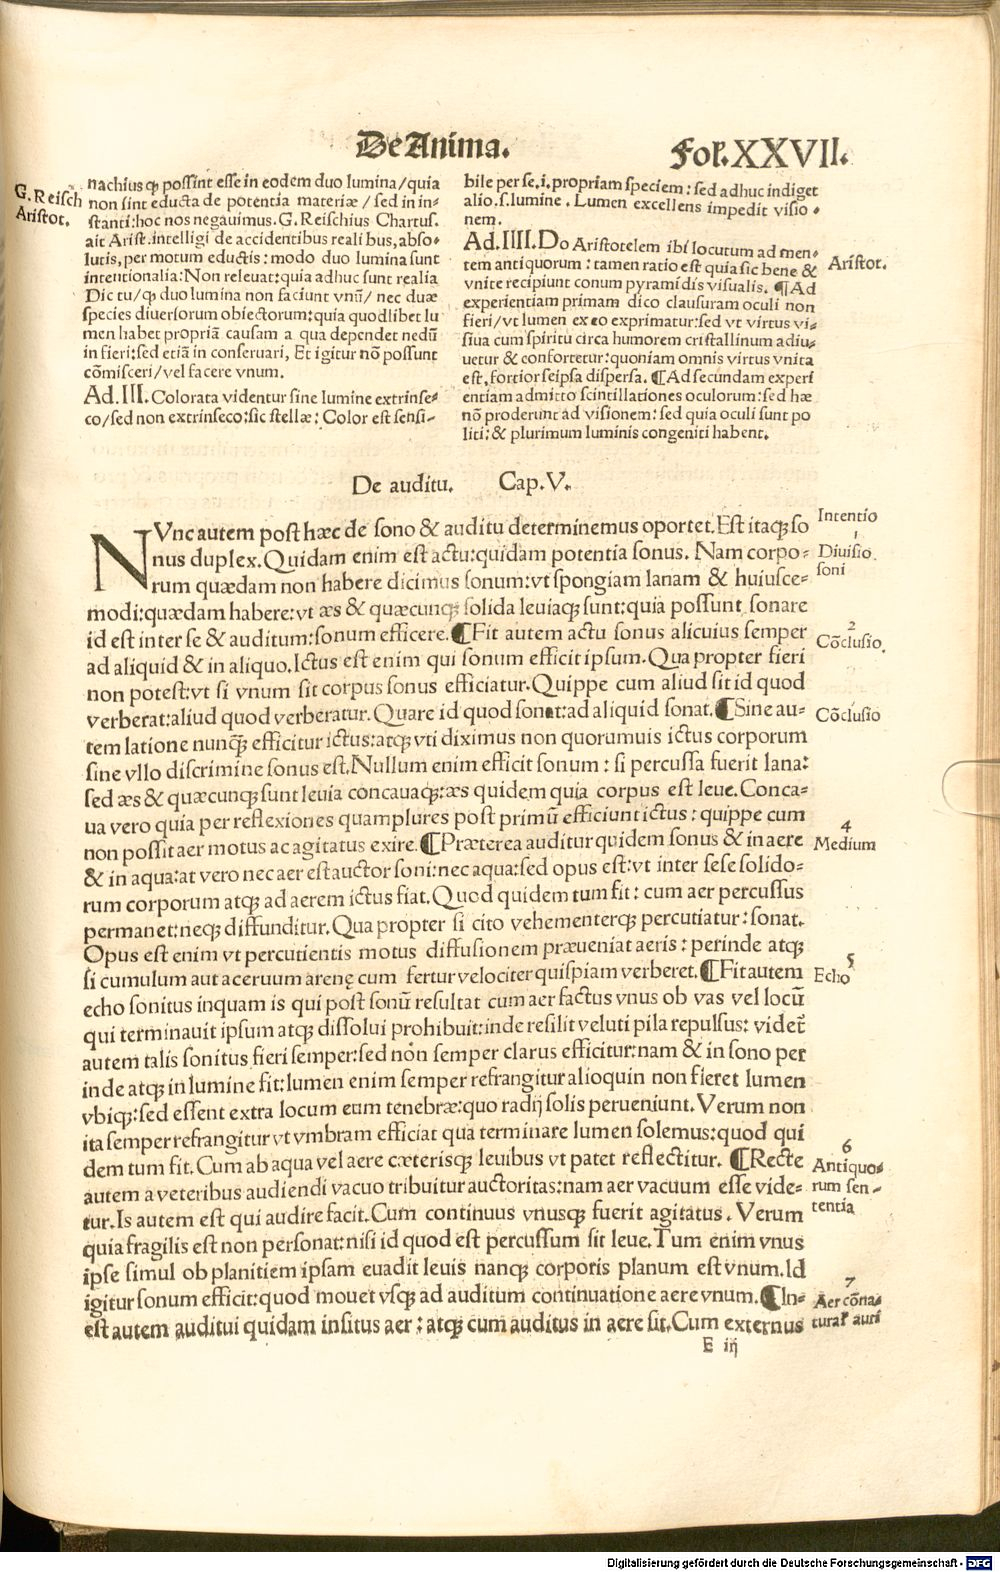 De Anima. Fol. XXVII.
G. Reisch
Aristot.
nachius ꝙ possint esse in eodem duo lumina/quia
non sint educta de potentia materiæ / sed in in-
stanti: hoc nos negauimus. G. Reischius Chartus.
ait Arist. intelligi de accidentibus realibus, abso-
lutis, per motum eductis: modo duo lumina sunt
intentionalia: Non releuat: quia adhuc sunt realia
Dic tu/ꝙ duo lumina non faciunt vnū/ nec duæ
species diuersorum obiectorum: quia quodlibet lu
men habet propriā causam a qua dependet nedū
in fieri: sed etiā in conseruari, Et igitur nō possunt
cōmisceri/vel facere vnum.
Ad. III. Colorata videntur sine lumine extrinse-
co/sed non extrinseco: sic stellæ: Color est sensi-
bile per se. i. propriam speciem: sed adhuc indiget
alio. s. lumine. Lumen excellens impedit visio-
nem.
Ad. IIII. Do Aristotelem ibi locutum ad men-
tem antiquorum: tamen ratio est quia sic bene &
vnite recipiunt conum pyramidis visualis. ¶ Ad
experientiam primam dico clausuram oculi non
fieri/vt lumen ex eo exprimatur: sed vt virtus vi-
siua cum spiritu circa humorem cristallinum adiu-
uetur & confortetur: quoniam omnis virtus vnita
est, fortior seipsa dispersa. ¶ Ad secundam experi
entiam admitto scintillationes oculorum: sed hæ
nō proderunt ad visionem: sed quia oculi sunt po
liti: & plurimum luminis congeniti habent.
Aristot.
De auditu. Cap. V.
NVnc autem post hæc de sono & auditu determinemus oportet. Est itaqꝫ so
nus duplex. Quidam enim est actu: quidam potentia sonus. Nam corpo-
rum quædam non habere dicimus sonum: vt spongiam lanam & huiusce-
modi: quædam habere: vt æs & quæcunqꝫ solida leuiaqꝫ sunt: quia possunt sonare
id est inter se & auditum: sonum efficere. ¶ Fit autem actu sonus alicuius semper
ad aliquid & in aliquo. Ictus est enim qui sonum efficit ipsum. Qua propter fieri
non potest: vt si vnum sit corpus sonus efficiatur. Quippe cum aliud sit id quod
verberat: aliud quod verberatur. Quare id quod sonat: ad aliquid sonat. ¶ Sine au-
tem latione nunqꝫ̄ efficitur ictus: atqꝫ vti diximus non quorumuis ictus corporum
sine vllo discrimine sonus est. Nullum enim efficit sonum: si percussa fuerit lana:
sed æs & quæcunqꝫ sunt leuia concauaqꝫ: æs quidem quia corpus est leue. Conca-
ua vero quia per reflexiones quamplures post primū efficiunt ictus: quippe cum
non possit aer motus ac agitatus exire. ¶ Præterea auditur quidem sonus & in aere
& in aqua: at vero nec aer est auctor soni: nec aqua: sed opus est: vt inter sese solido-
rum corporum atqꝫ ad aerem ictus fiat. Quod quidem tum fit: cum aer percussus
permanet: neqꝫ diffunditur. Qua propter si cito vehementerqꝫ percutiatur: sonat.
Opus est enim vt percutientis motus diffusionem præueniat aeris: perinde atqꝫ
si cumulum aut aceruum arenę cum fertur velociter quispiam verberet. ¶ Fit autem
echo sonitus inquam is qui post sonū resultat cum aer factus vnus ob vas vel locū
qui terminauit ipsum atqꝫ dissolui prohibuit: inde resilit veluti pila repulsus: videt̄
autem talis sonitus fieri semper: sed non semper clarus efficitur: nam & in sono per
inde atqꝫ in lumine fit: lumen enim semper refrangitur alioquin non fieret lumen
vbiqꝫ: sed essent extra locum eum tenebræ: quo radij solis perueniunt. Verum non
ita semper refrangitur vt vmbram efficiat qua terminare lumen solemus: quod qui
dem tum fit. Cum ab aqua vel aere cæterisqꝫ leuibus vt patet reflectitur. ¶ Recte
autem a veteribus audiendi vacuo tribuitur auctoritas: nam aer vacuum esse vide-
tur. Is autem est qui audire facit. Cum continuus vnusqꝫ fuerit agitatus. Verum
quia fragilis est non personat: nisi id quod est percussum sit leue. Tum enim vnus
ipse simul ob planitiem ipsam euadit leuis nanqꝫ corporis planum est vnum. Id
igitur sonum efficit: quod mouet vsqꝫ ad auditum continuatione aere vnum. ¶ In-
est autem auditui quidam insitus aer: atqꝫ cum auditus in aere sit. Cum externus
E iij
Intentio
1
Diuisio
soni
2
Cōclusio
Cōclusio
4
Medium
5
Echo
6
Antiquo-
rum sen-
tentia
7
Aer cōna-
turaƚ auri
Digitalisierung gefördert durch die Deutsche Forschungsgemeinschaft - DFG